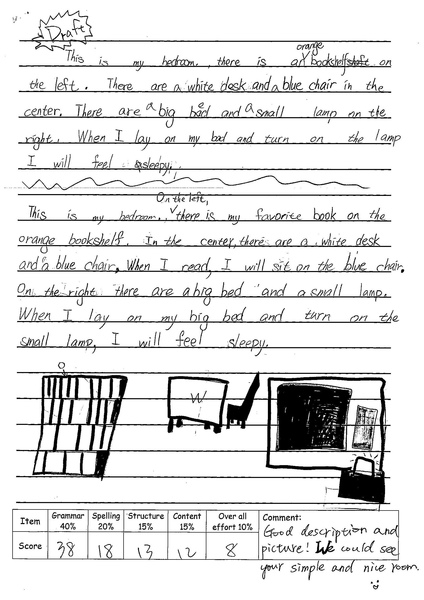 Draft
This is my bedroom. there is a orange bookshelf on
the left. There are a white desk and a blue chair in the
center. There are a big bed and a small lamp on the
right. When I lay on my bad and turn on the lamp
I will feel sleepy.
On the left,
This is my bedroom. there is my favorite book on the
orange bookshelf. In the center, there are a white desk
and a blue chair. When I read, I will sit on the blue chair.
On the right there are a big bed and a small lamp.
When I lay on my big bed and turn on the
small lamp, I will feel sleepy.
O
W
Item Grammar 40% Spelling 20% Structure 15% Content 15% Over all effort 10% Comment:
Score 38 18 13 12 8
Good description and
picture! We could see
your simple and nice room.